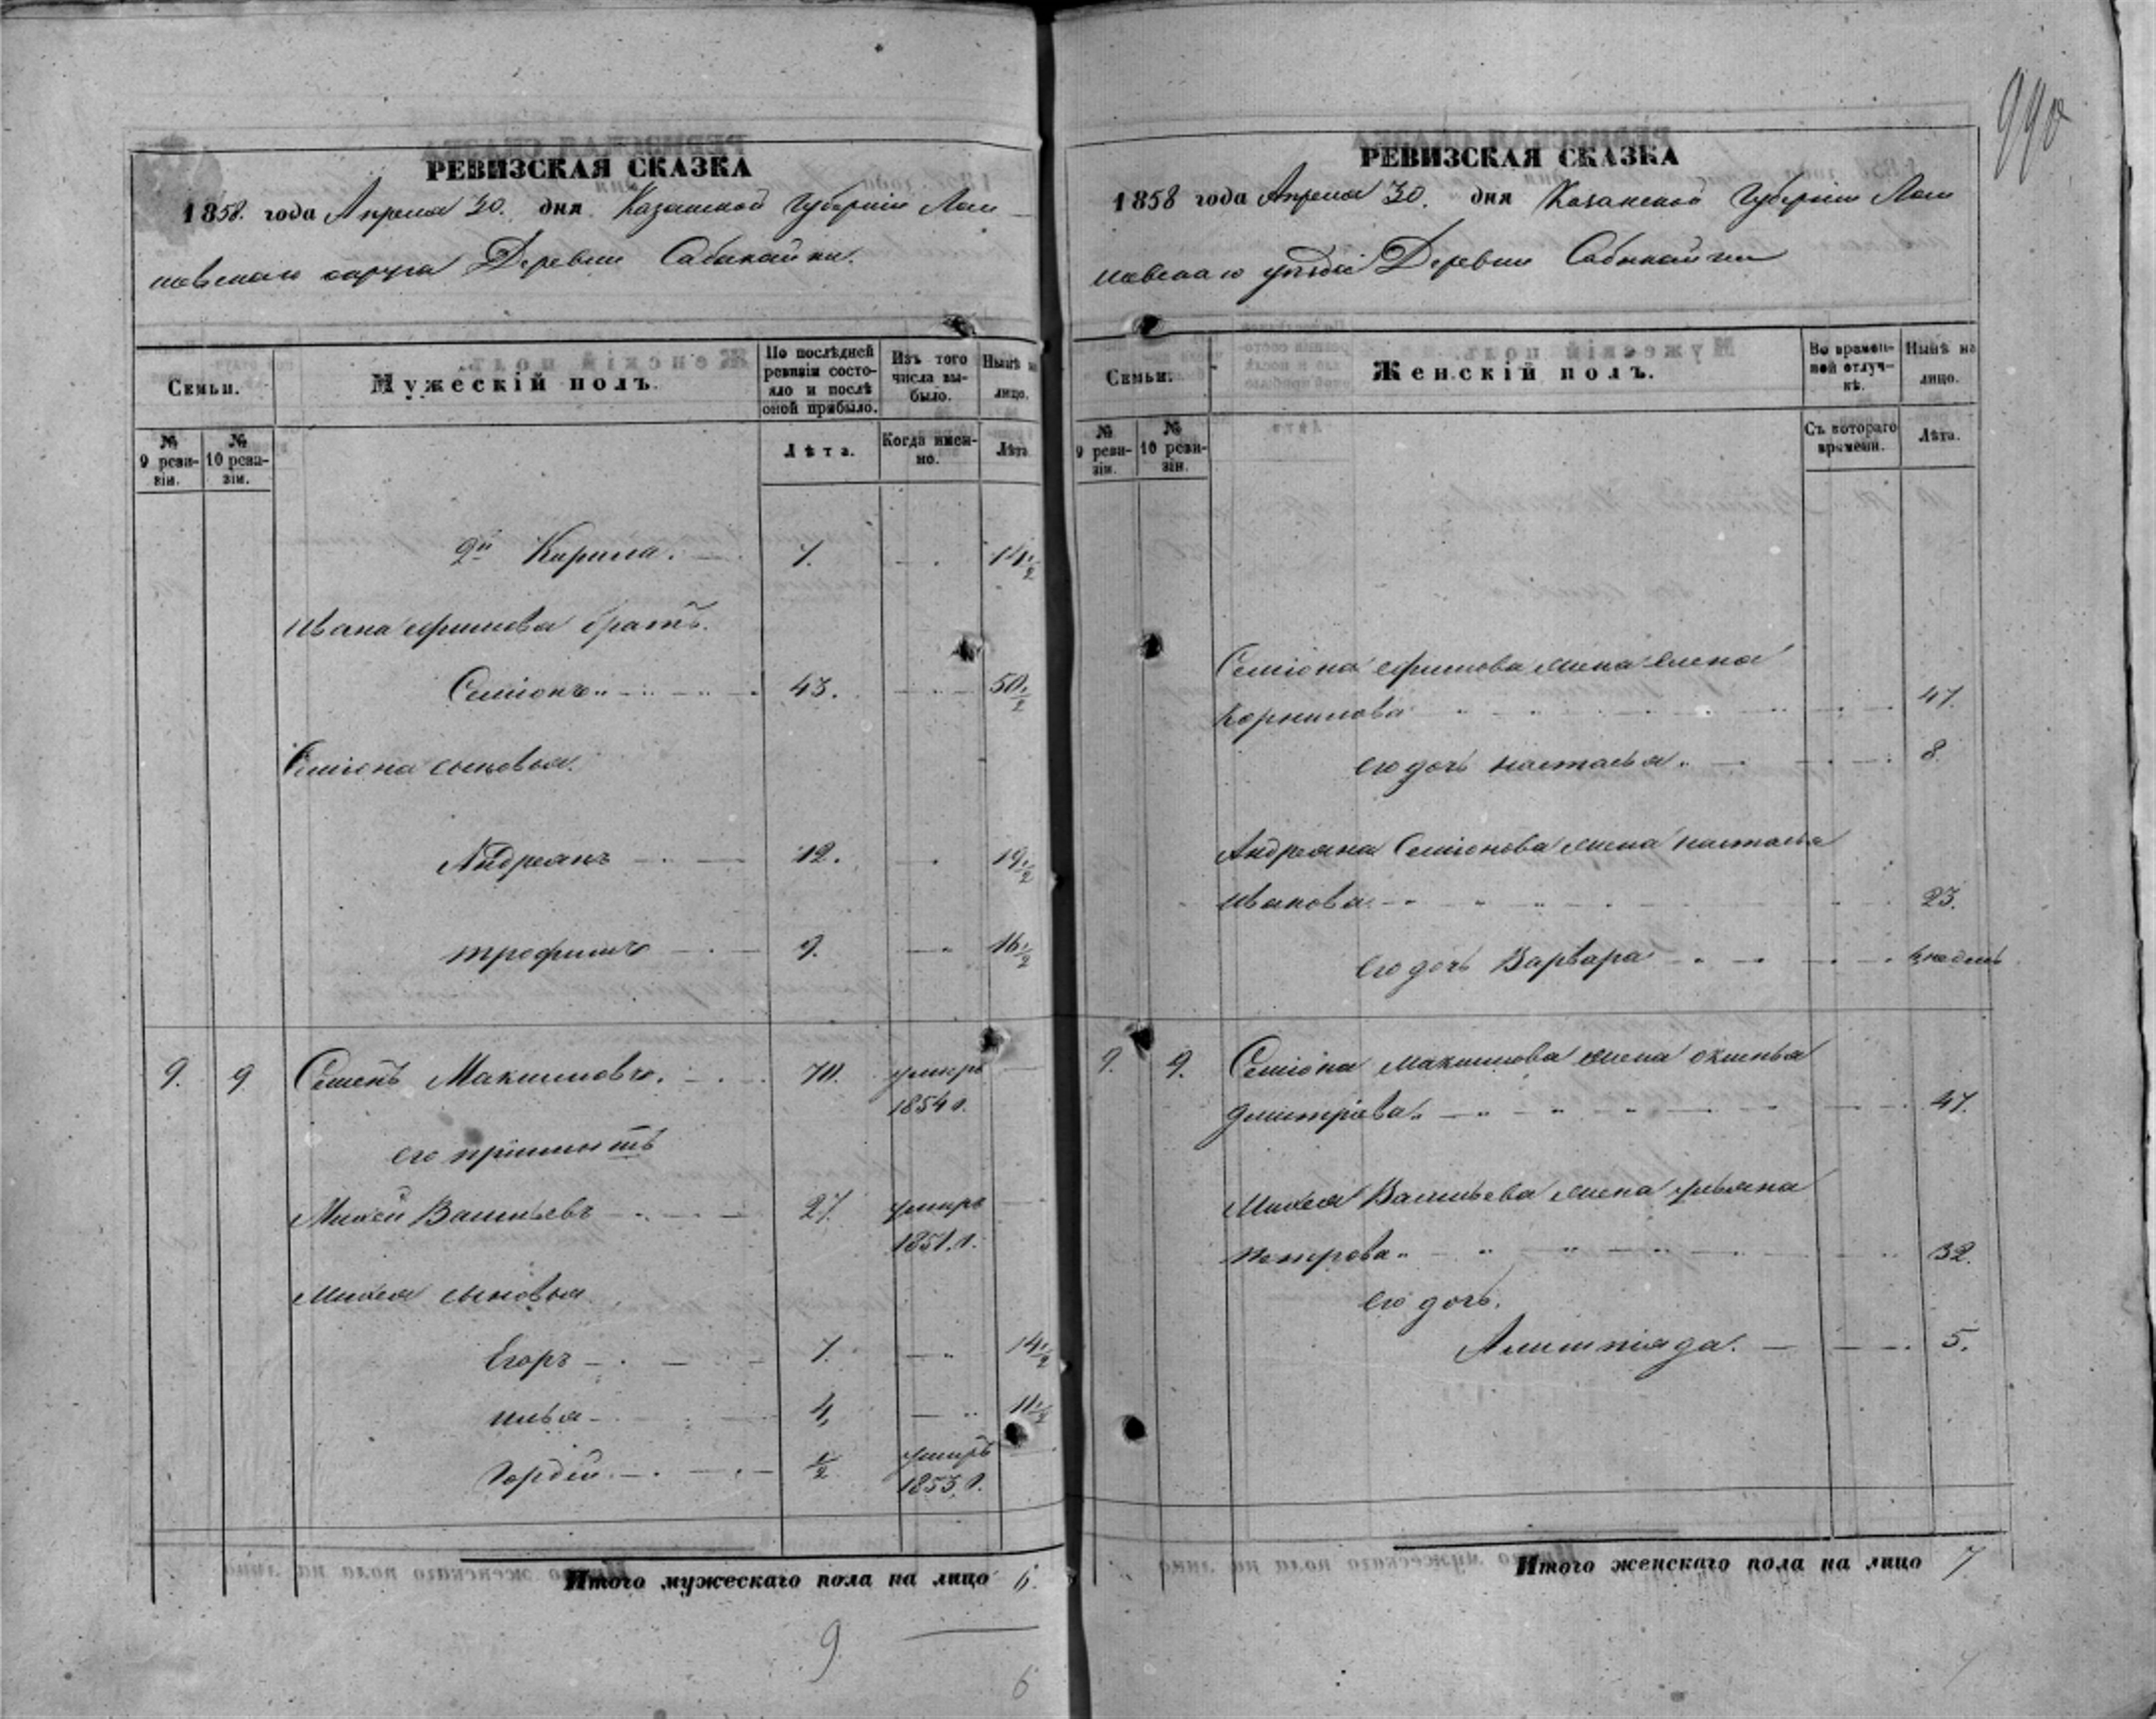 990
РЕВИЗСКАЯ СКАЗКА
1858. года Апреля 30. дня Казанской Губерніи Лаи
шевскаго округа Деревни Сабакайки.
Семьи.
Мужескій полъ.
По послѣдней ревизіи состояло и послѣ оной прибыло.
Изъ того числа выбыло.
Нынѣ на лицо.
№ 9 ревизіи.
№ 10 ревизіи.
Лѣта.
Когда именно.
Лѣта.
2й Кирила. 7. 14 1/2
Ивана Ефимова братъ.
Семіонъ 43. 50 1/2
Семіона сыновья.
Андреянъ 12. 19 1/2
Трофимъ 9. 16 1/2
9. 9 Семенъ Максимовъ. 70. умиръ
1854 г.
его пріимышъ
Михей Васильевъ 27. умиръ
1851. г.
Михея сыновья
Егоръ 7. 14 1/2
Илья 4. 11 1/2
Гордей 1/2 умиръ
1853. г.
Итого мужескаго пола на лицо 6.
9
6
РЕВИЗСКАЯ СКАЗКА
1858 года Апреля 30. дня Казанской Губерніи Лаи
шевскаго уѣзда Деревни Сабакайки
Семьи.
Женскій полъ.
Во временной отлучкѣ.
Нынѣ на лицо.
№ 9 ревизіи.
№ 10 ревизіи.
Съ котораго времени.
Лѣта.
Семіона Ефимова жена Елена
Корнилова 47.
его дочь Настасья 8.
Андреяна Семіонова жена Настасья
Иванова 23.
его дочь Варвара недель
9. 9. Семіона Максимова жена Окинья
Дмитріева 47.
Михея Васильева жена Ульяна
Петрова 32.
его дочь.
Алимпіяда. 5.
Итого женскаго пола на лицо 7